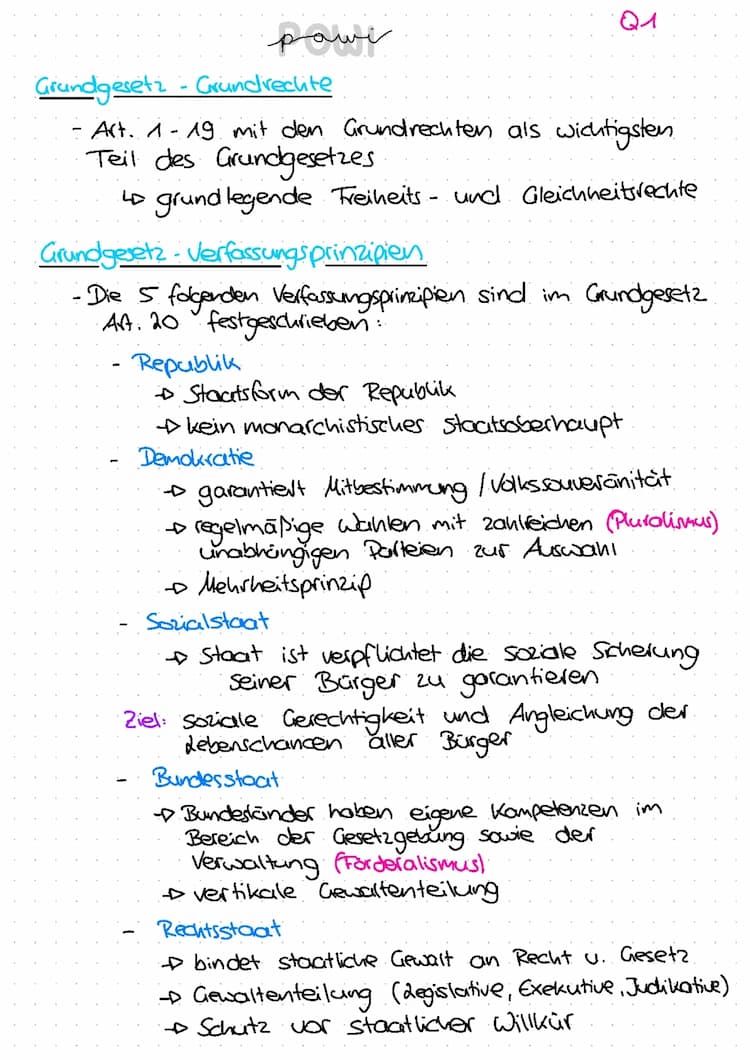 powi
Q1
Grundgesetz - Grundrechte
- Art. 1 - 19 mit den Grundrechten als wichtigsten
Teil des Grundgesetzes
↳ grundlegende Freiheits - und Gleichheitsrechte
Grundgesetz - Verfassungsprinzipien
- Die 5 folgenden Verfassungsprinzipien sind im Grundgesetz
Art. 20 festgeschrieben:
- Republik
→ Staatsform der Republik
→ kein monarchistisches Staatsoberhaupt
- Demokratie
→ garantiert Mitbestimmung / Volkssouveränität
→ regelmäßige Wahlen mit zahlreichen (Pluralismus)
unabhängigen Parteien zur Auswahl
→ Mehrheitsprinzip
- Sozialstaat
→ Staat ist verpflichtet die soziale Scherung
seiner Bürger zu garantieren
Ziel: soziale Gerechtigkeit und Angleichung der
Lebenschancen aller Bürger
- Bundesstaat
→ Bundesländer haben eigene Kompetenzen im
Bereich der Gesetzgebung sowie der
Verwaltung (Förderalismus)
→ vertikale Gewaltenteilung
- Rechtsstaat
→ bindet staatliche Gewalt an Recht u. Gesetz
→ Gewaltenteilung (Legislative, Exekutive, Judikative)
→ Schutz vor staatlicher Willkür